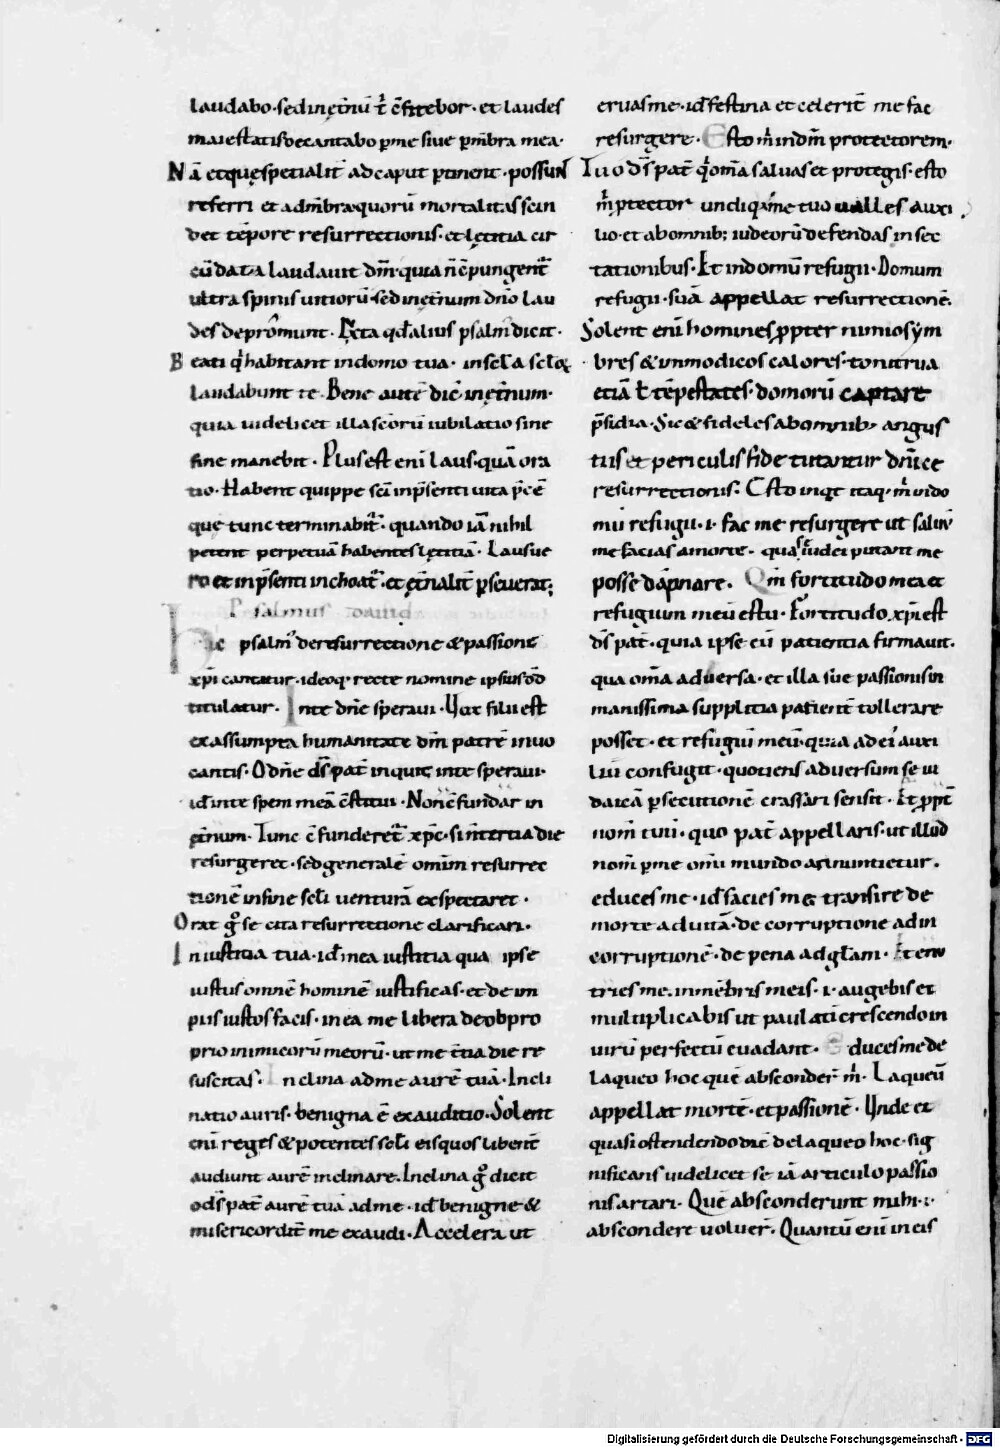 laudabo · sed in et̄nū t̄ c̄fitebor · et laudes
maiestatis decantabo ꝑ me siue ꝑ m̄bra mea ·
Nā et quę spetialit̄ ad caput ꝑtinent · possunt
referri et ad m̄bra quorū mortalitas sein
det tēpore resurrectionis · et lętitia cir
cūdata laudauit dm̄ · quia n̄ c̄pungent᷑
ultra spinis uitiorū · sed in et̄num dn̄o lau
des depromunt · Iuxta qđ alius psalmꝰ dicit ·
Beati q̇ habitant in domo tua · in scl̄a scl̄oꝝ
laudabunt te · Bene autē dic̄ in et̄num ·
quia uidelicet illa sc̄orū iubilatio sine
fine manebit · Plus est enī laus · quā ora
tio · Habent quippe sc̄i in p̄senti uita p̄cē
que tunc terminabit᷑ · quando iā nihil
petent perpetuā habentes lętitiā · Laus ue
ro et in p̄senti inchoat᷑ · et et̄nalit̄ ꝑseuerat ;
Psalmus dauid
Hic psalmꝰ de resurrectione & passione
xp̄i cantatur · ideoq· recte nomine ipsius dd̄
titulatur · In te dn̄e speraui · Vox filii est
ex assumpta humanitate dm̄ patrē inuo
cantis · O dn̄e ds̄ pat̄ inquit in te speraui ·
id̄ in te spem meā c̄stitui · Non c̄fundar in
et̄num · Tunc c̄funderet᷑ xp̄c · si n̄ tertia die
resurgeret · sed generalē omīum resurrec
tionē in fine sc̄li venturā exspectaret ·
Orat g̊ se cita resurrectione clarificari ·
In iustitia tua · id̄ in ea iustitia qua ipse
iustus omnē hominē iustificas · et de im
piis iustos facis · in ea me libera de obpro
prio inimicorū meorū · ut me t̄tia die re
suscitas · Inclina ad me aurē tuā · Incli
natio auris · benigna ē exauditio · Solent
enī reges & potentes scl̄i eis quos libent̄
audiunt aurē inclinare · Inclina g̊ dicit
o ds̄ pat̄ aurē tuā ad me · id̄ benigne &
misericordit̄ me exaudi · Accelera ut
eruas me · id̄ festina et celerit̄ me fac
resurgere · Esto m̄ in dm̄ protectorem ·
Tu o ds̄ pat̄ q̇ om̄a saluas et protegis · esto
m̄ ꝓtector undiqꝫ me tuo ualles auxi
lio · et ab omnib; iudeorū defendas in sec
tationibus · Et in domū refugii · Domum
refugii · suā appellat resurrectionē ·
Solent enī homines ꝓpter nimios ym
bres & inmodicos calores · tonitrua
etiā t̄ tēpestates · domorū captare
p̄sidia · Sic & fideles ab omnib; angus
tiis et periculis fide tutantur dn̄ice
resurrectionis · Esto inqt̄ itaq· m̄ in do
mū refugii · i · fac me resurgere ut saluū
me facias a morte · quasi iudei putant me
posse dāpnare · Qm̄ fortitudo mea et
refugium meū es tu · Fortitudo xp̄i est
ds̄ pat̄ · quia ipse eū patientia firmauit ·
qua om̄a aduersa · et illa suę passionis in
manissima supplitia patient̄ tollerare
posset · et refugiū meū · quia ad ei᷑ auxi
lui confugit · quotiens aduersum se iu
daicā ꝑsecutionē crassari sensit · Et ꝓpt̄
nom̄ tuū · quo pat̄ appellaris · ut illud
nom̄ ꝑ me omī mundo adnuntietur ·
educes me · id̄ facies me transire de
morte ad uitā · de corruptione ad in
corruptionē · de pena ad gl̄am · Et enu
tries me · in mēbris meis · i · augebis et
multiplicabis ut paulati crescendo in
uirū perfectū euadant · Educes me de
laqueo hoc quē absconder̄ m̄ · Laqueū
appellat mortē · et passionē · Vnde et
quasi ostendendo dic̄ de laqueo hoc · sig
nificans uidelicet se iā articulo passio
nis artari · Quē absconderunt mihi · i ·
abscondere uoluer̄ · Quantū enī in eis